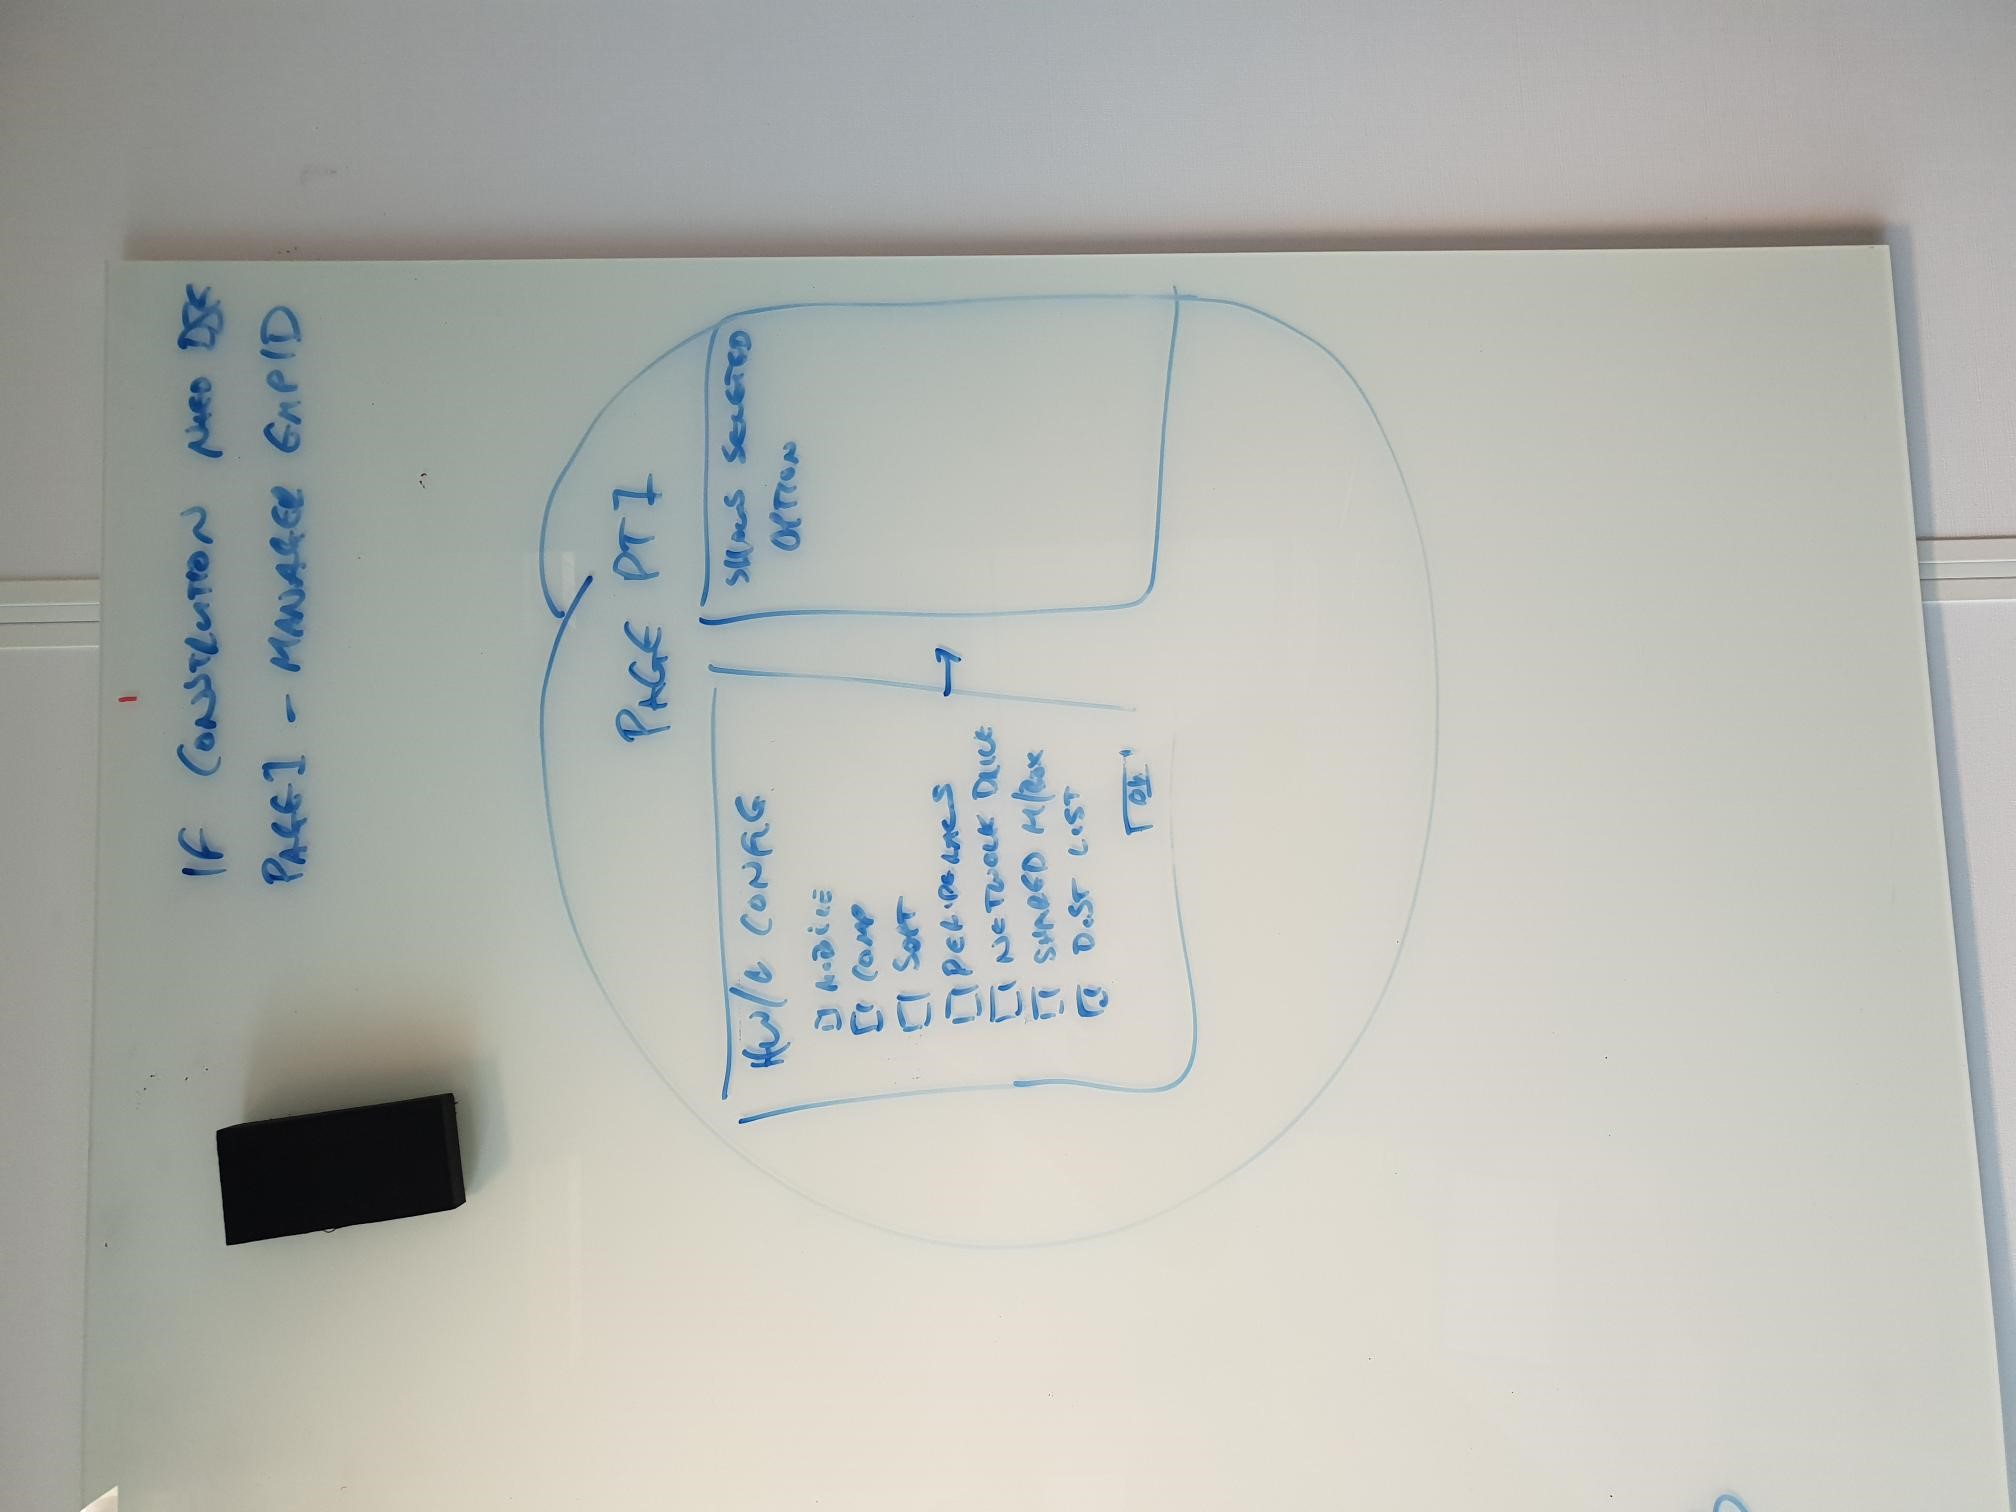 IF CONSTRUTION NEED DSE
PAGE 1 - MANAGER EMPID
PAGE PT 1
CONFIG
MOBILE
COMP
SOFT
PERIPERALS
NETWORK DRIVE
SHARED M/BOX
DIST LIST
OK
SHOWS SELECTED
OPTION